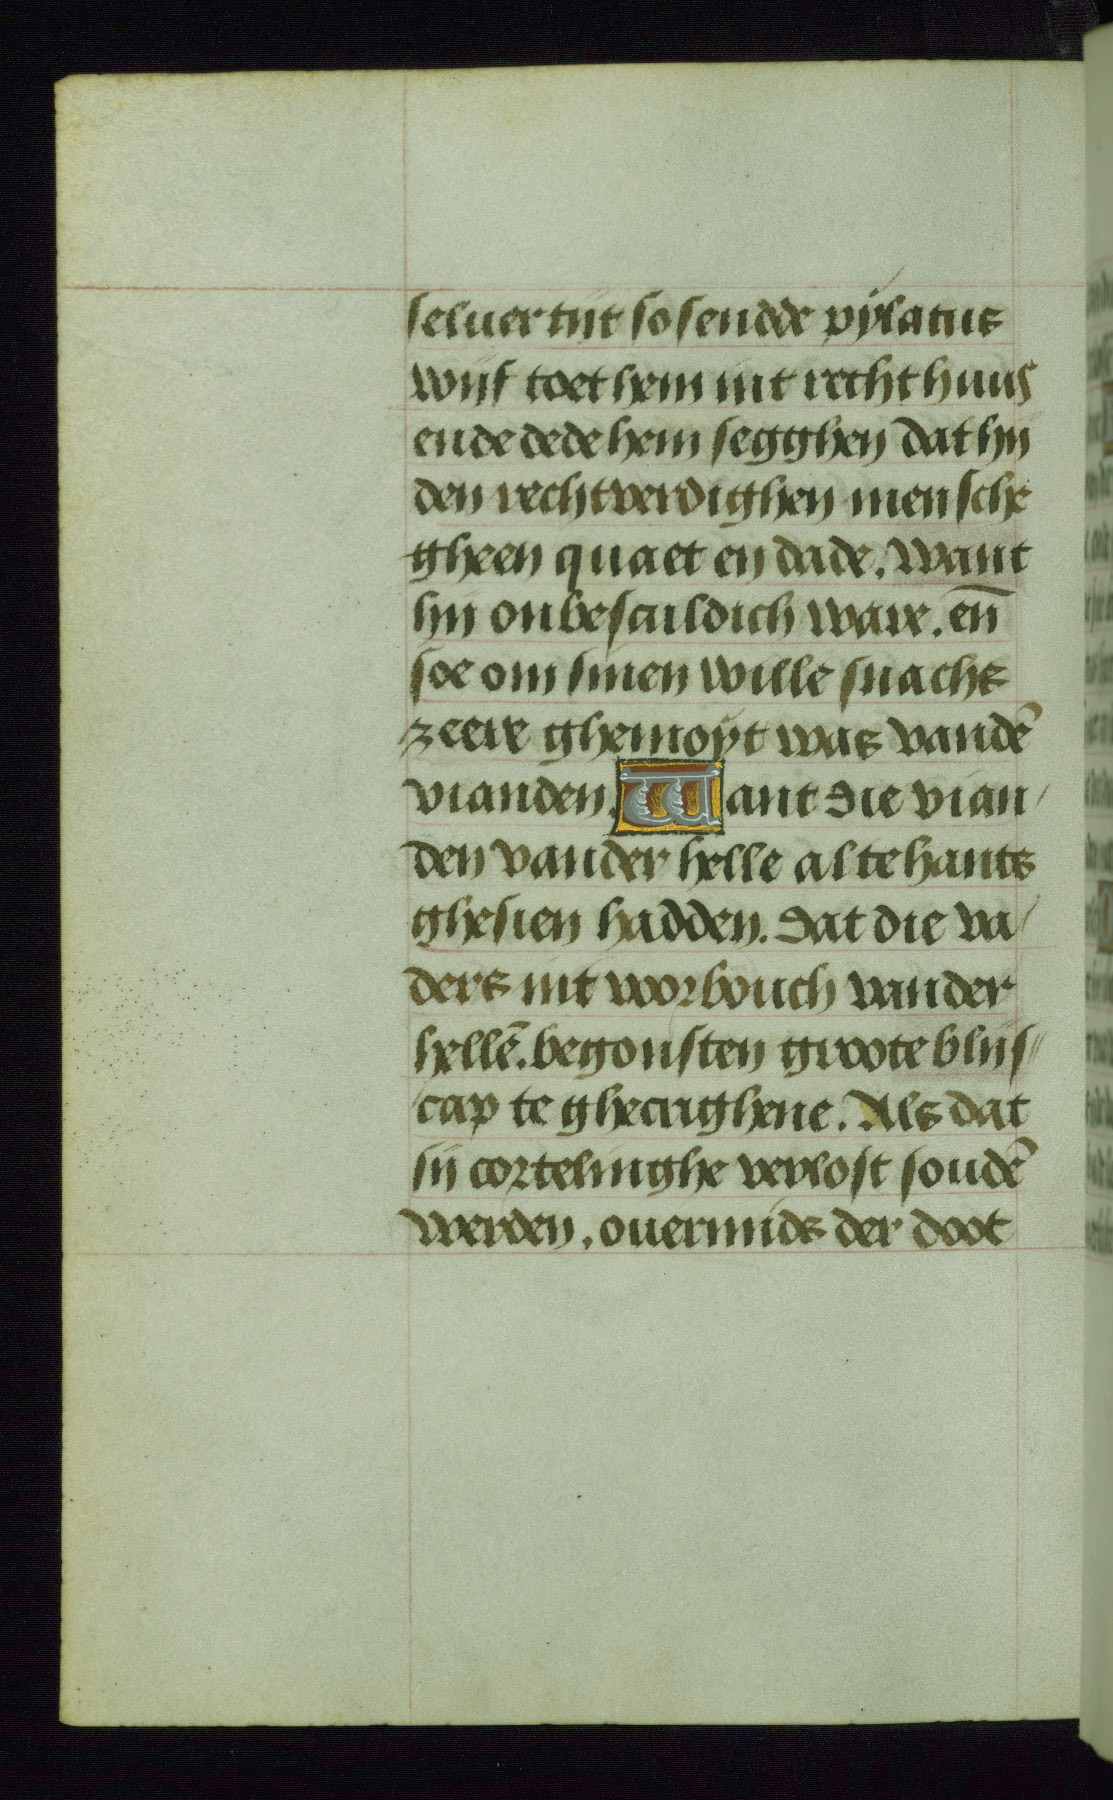 seluer tijt so sendde pylatus
wijf toet hem int rechthuus
ende dede hem segghen dat hij
den rechtverdighen mensche
gheen quaet en dade. Want
hij onbesculdich ware. en̄
soe om sinen wille snachts
zeere ghemoyt was vandē
vianden. Want die vian/
den vander helle altehants
ghesien hadden. dat die va/
ders int voorbouch vander
hellē. begonsten groote blijs//
cap te ghecrighene. Als dat
sij cortelinghe verlost soudē
werden. ouermids der doot